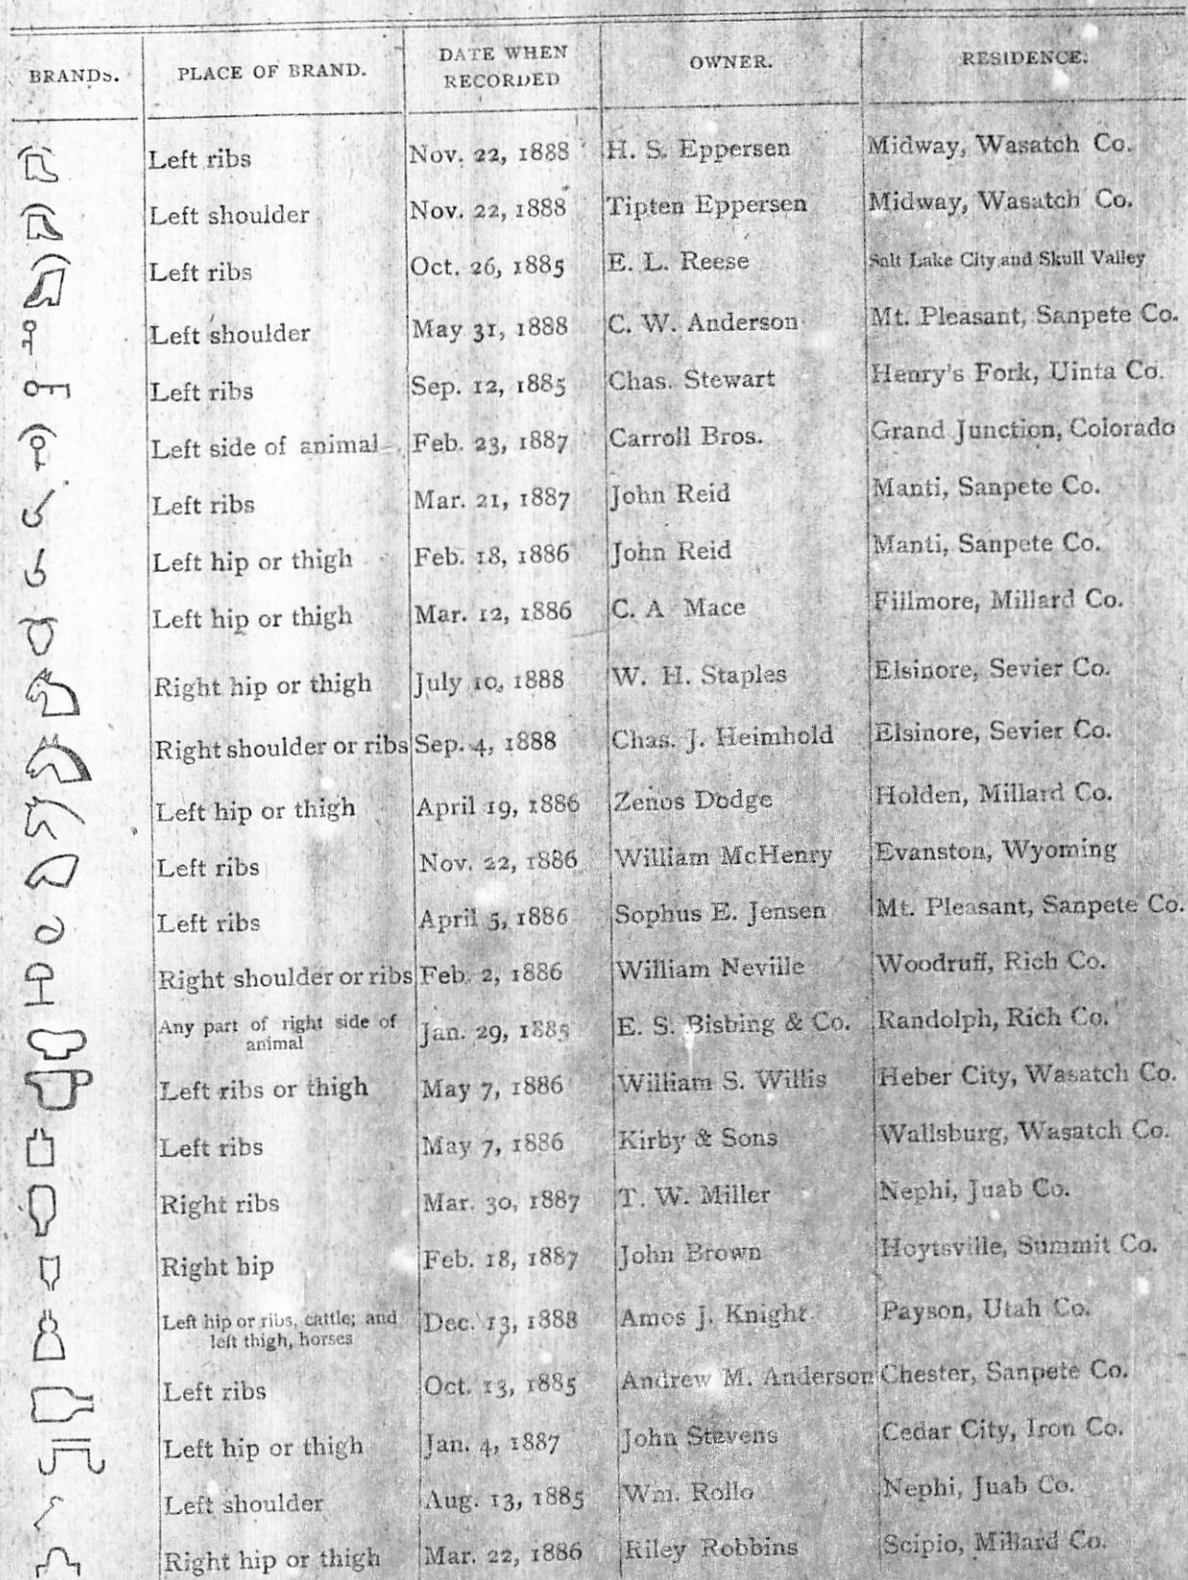 BRANDS. PLACE OF BRAND. DATE WHEN RECORDED OWNER. RESIDENCE.
Left ribs Nov. 22, 1888 H. S. Eppersen Midway, Wasatch Co.
Left shoulder Nov. 22, 1888 Tipten Eppersen Midway, Wasatch Co.
Left ribs Oct. 26, 1885 E. L. Reese Salt Lake City and Skull Valley
Left shoulder May 31, 1888 C. W. Anderson Mt. Pleasant, Sanpete Co.
Left ribs Sep. 12, 1885 Chas. Stewart Henry's Fork, Uinta Co.
Left side of animal Feb. 23, 1887 Carroll Bros. Grand Junction, Colorado
Left ribs Mar. 21, 1887 John Reid Manti, Sanpete Co.
Left hip or thigh Feb. 18, 1886 John Reid Manti, Sanpete Co.
Left hip or thigh Mar. 12, 1886 C. A Mace Fillmore, Millard Co.
Right hip or thigh July 10, 1888 W. H. Staples Elsinore, Sevier Co.
Right shoulder or ribs Sep. 4, 1888 Chas. J. Heimhold Elsinore, Sevier Co.
Left hip or thigh April 19, 1886 Zenos Dodge Holden, Millard Co.
Left ribs Nov. 22, 1886 William McHenry Evanston, Wyoming
Left ribs April 5, 1886 Sophus E. Jensen Mt. Pleasant, Sanpete Co.
Right shoulder or ribs Feb. 2, 1886 William Neville Woodruff, Rich Co.
Any part of right side of animal Jan. 29, 1885 E. S. Bisbing & Co. Randolph, Rich Co.
Left ribs or thigh May 7, 1886 William S. Willis Heber City, Wasatch Co.
Left ribs May 7, 1886 Kirby & Sons Wallsburg, Wasatch Co.
Right ribs Mar. 30, 1887 T. W. Miller Nephi, Juab Co.
Right hip Feb. 18, 1887 John Brown Hoytsville, Summit Co.
Left hip or ribs, cattle; and left thigh, horses Dec. 13, 1888 Amos J. Knight. Payson, Utah Co.
Left ribs Oct. 13, 1885 Andrew M. Anderson Chester, Sanpete Co.
Left hip or thigh Jan. 4, 1887 John Stevens Cedar City, Iron Co.
Left shoulder Aug. 13, 1885 Wm. Rollo Nephi, Juab Co.
Right hip or thigh Mar. 22, 1886 Riley Robbins Scipio, Millard Co.